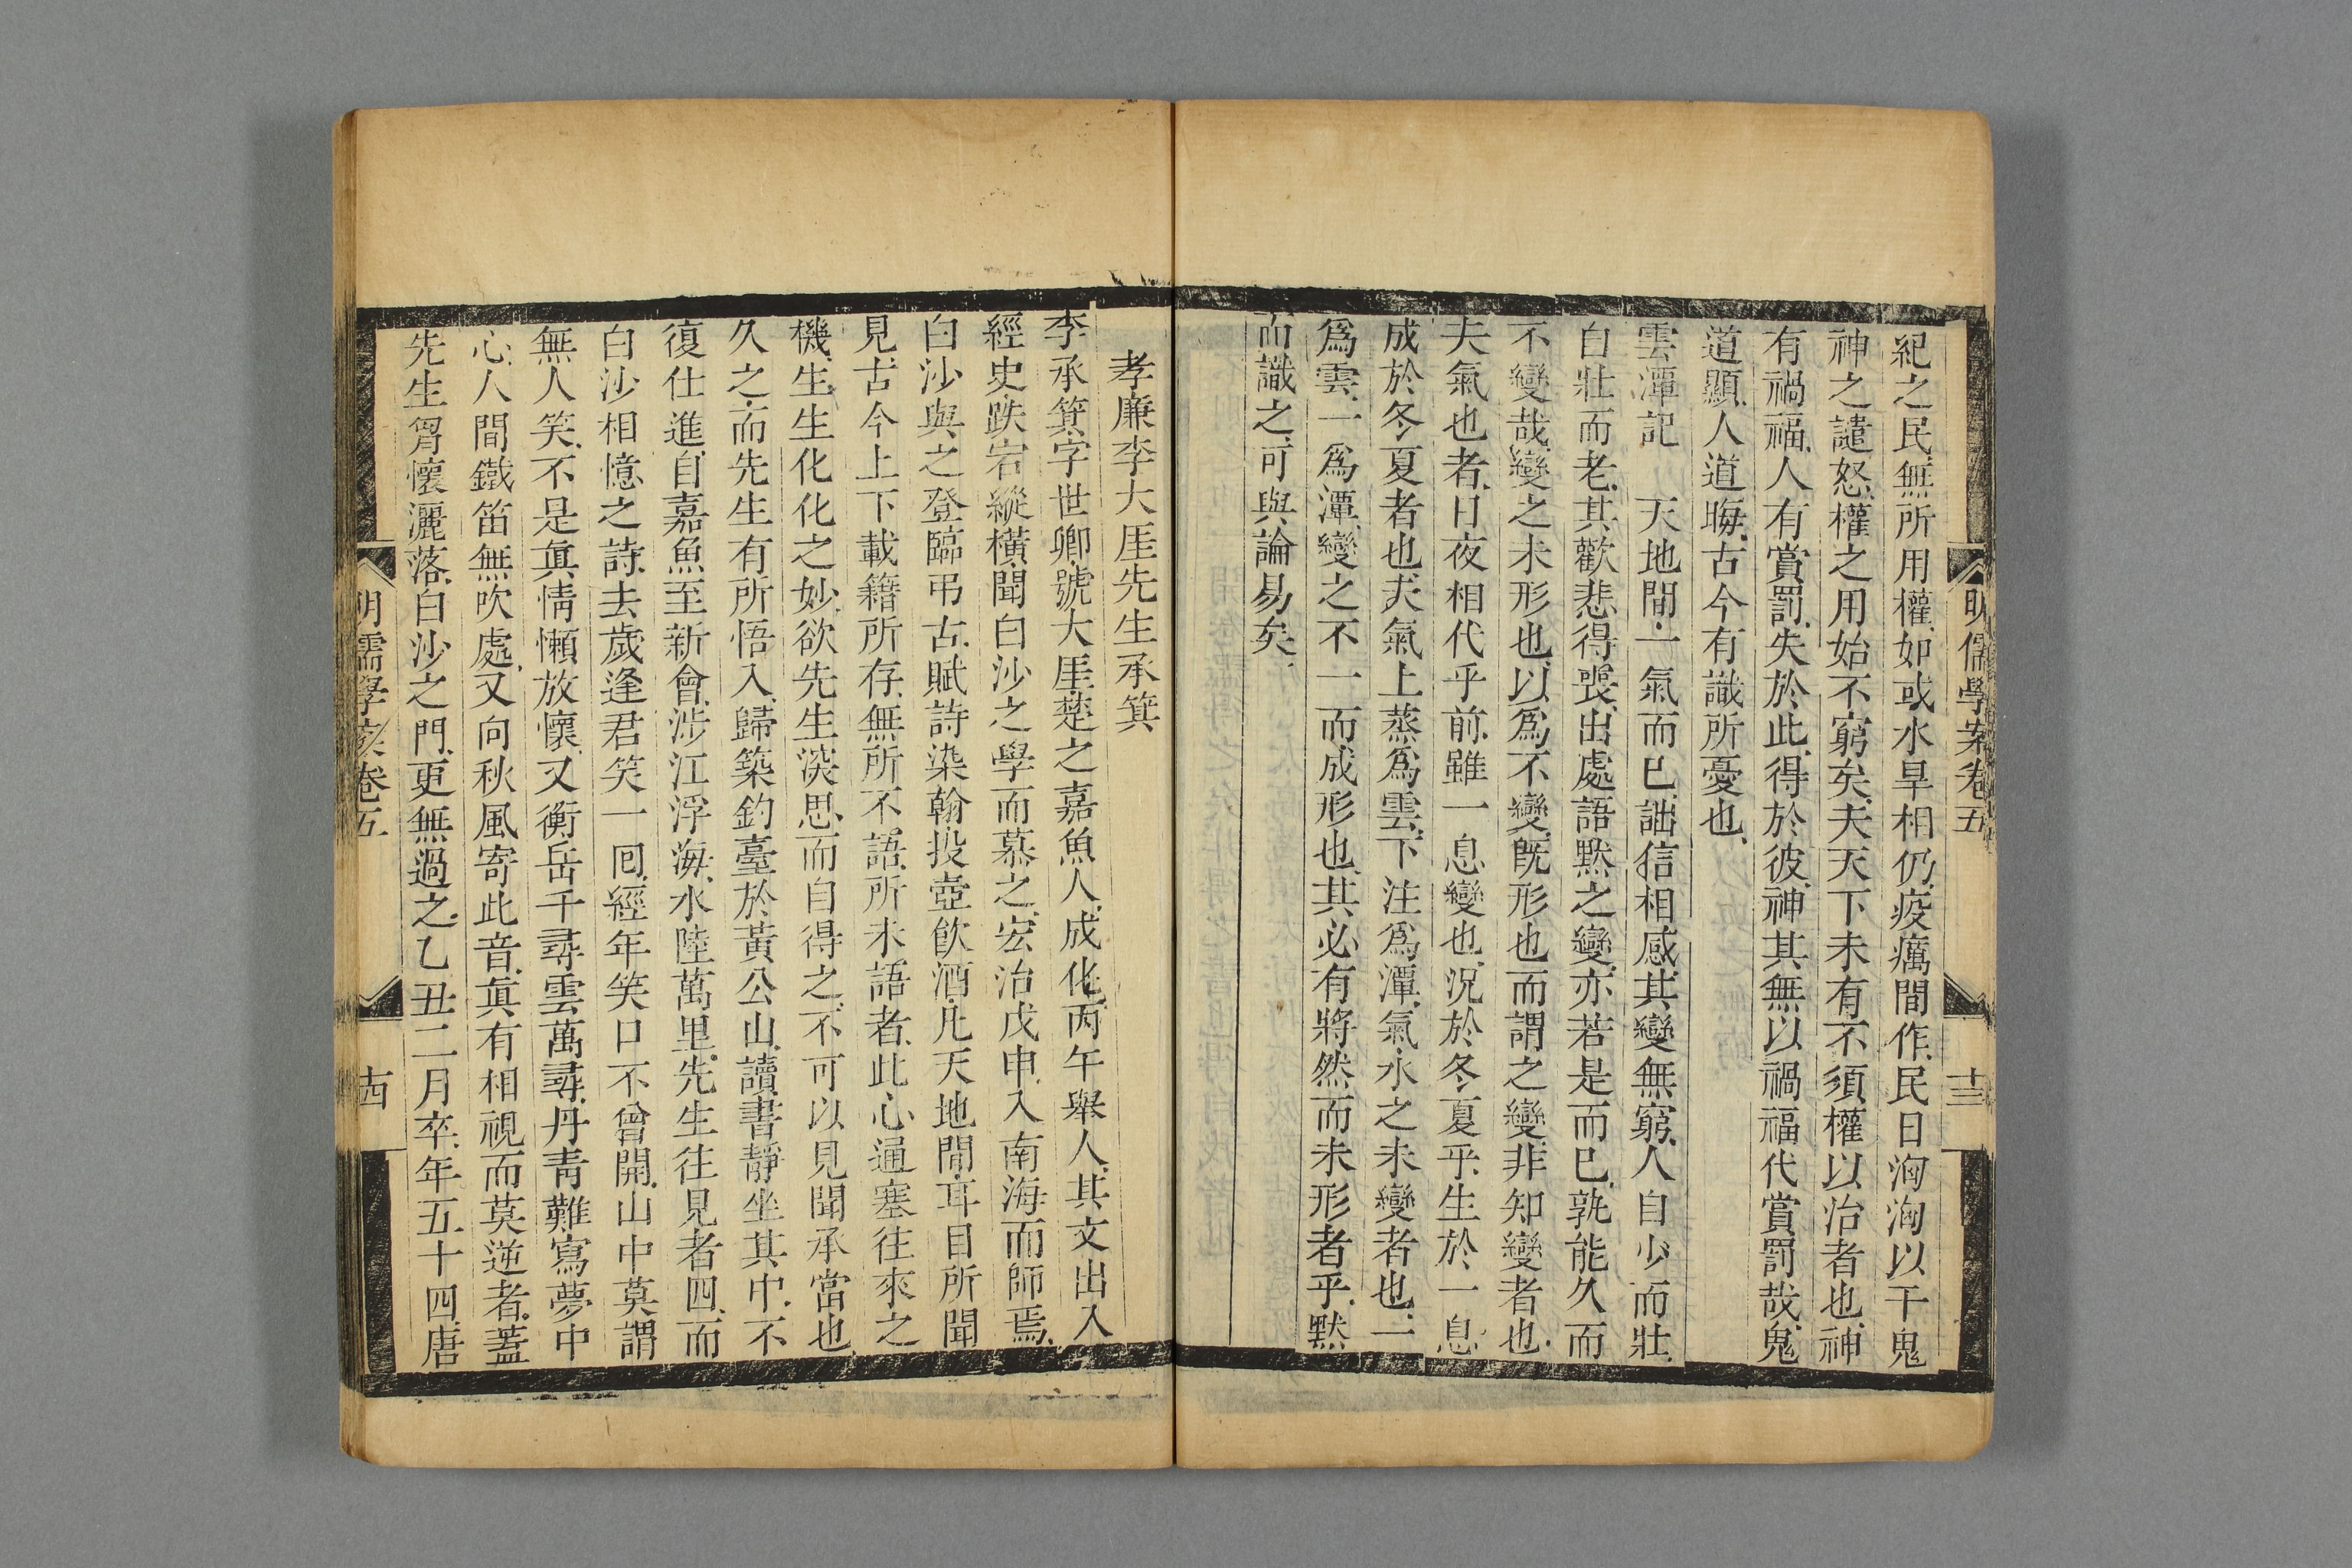 明儒學案卷五
十三
紀之民、無所用權、如或水旱相仍、疫癘間作、民日洶洶以干鬼
神之譴怒、權之用、始不窮矣、夫天下未有不須權以治者也、神
有禍福、人有賞罰、失於此、得於彼、神其無以禍福代賞罰哉、鬼
道顯、人道晦、古今有識所憂也、
雲潭記 天地間一氣而已、詘信相感、其變無窮、人自少而壯、
自壯而老、其歡悲得喪、出處語默之變、亦若是而已、孰能久而
不變哉、變之未形也、以爲不變、旣形也而謂之變、非知變者也、
夫氣也者、日夜相代乎前、雖一息變也、況於冬夏乎、生於一息、
成於冬夏者也、夫氣上蒸爲雲、下注爲潭、氣水之未變者也、一
爲雲、一爲潭、變之不一而成形也、其必有將然而未形者乎、默
而識之、可與論易矣、
孝廉李大厓先生承箕
李承箕、字世卿、號大厓、楚之嘉魚人、成化丙午舉人、其文出入
經史、跌宕縱橫、聞白沙之學而慕之、宏治戊申、入南海而師焉、
白沙與之登臨弔古、賦詩染翰、投壺飮酒、凡天地間耳目所聞
見、古今上下載籍所存、無所不語、所未語者、此心通塞往來之
機、生生化化之妙、欲先生深思而自得之、不可以見聞承當也、
久之而先生有所悟入、歸築釣臺於黃公山、讀書靜坐其中、不
復仕進、自嘉魚至新會、涉江浮海、水陸萬里、先生往見者四、而
白沙相憶之詩、去歲逢君笑一囘、經年笑口不曾開、山中莫謂
無人笑、不是眞情懶放懷、又衡岳千尋雲萬尋、丹靑難寫夢中
心、人間鐵笛無吹處、又向秋風寄此音、眞有相視而莫逆者、蓋
先生胷懷灑落、白沙之門、更無過之、乙丑二月卒、年五十四、唐
明儒學案卷五
十四